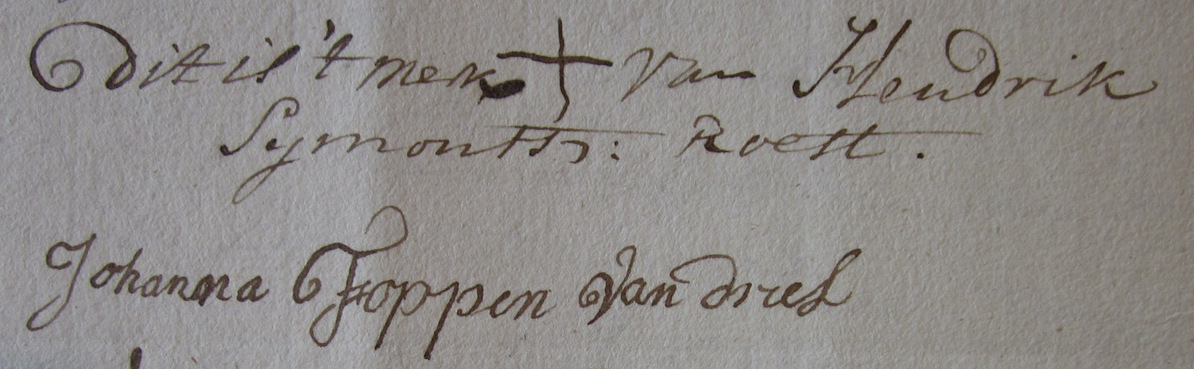 Dit is 't merk + van Hendrik
Symontsz: Roest.
Johanna Foppen van driel